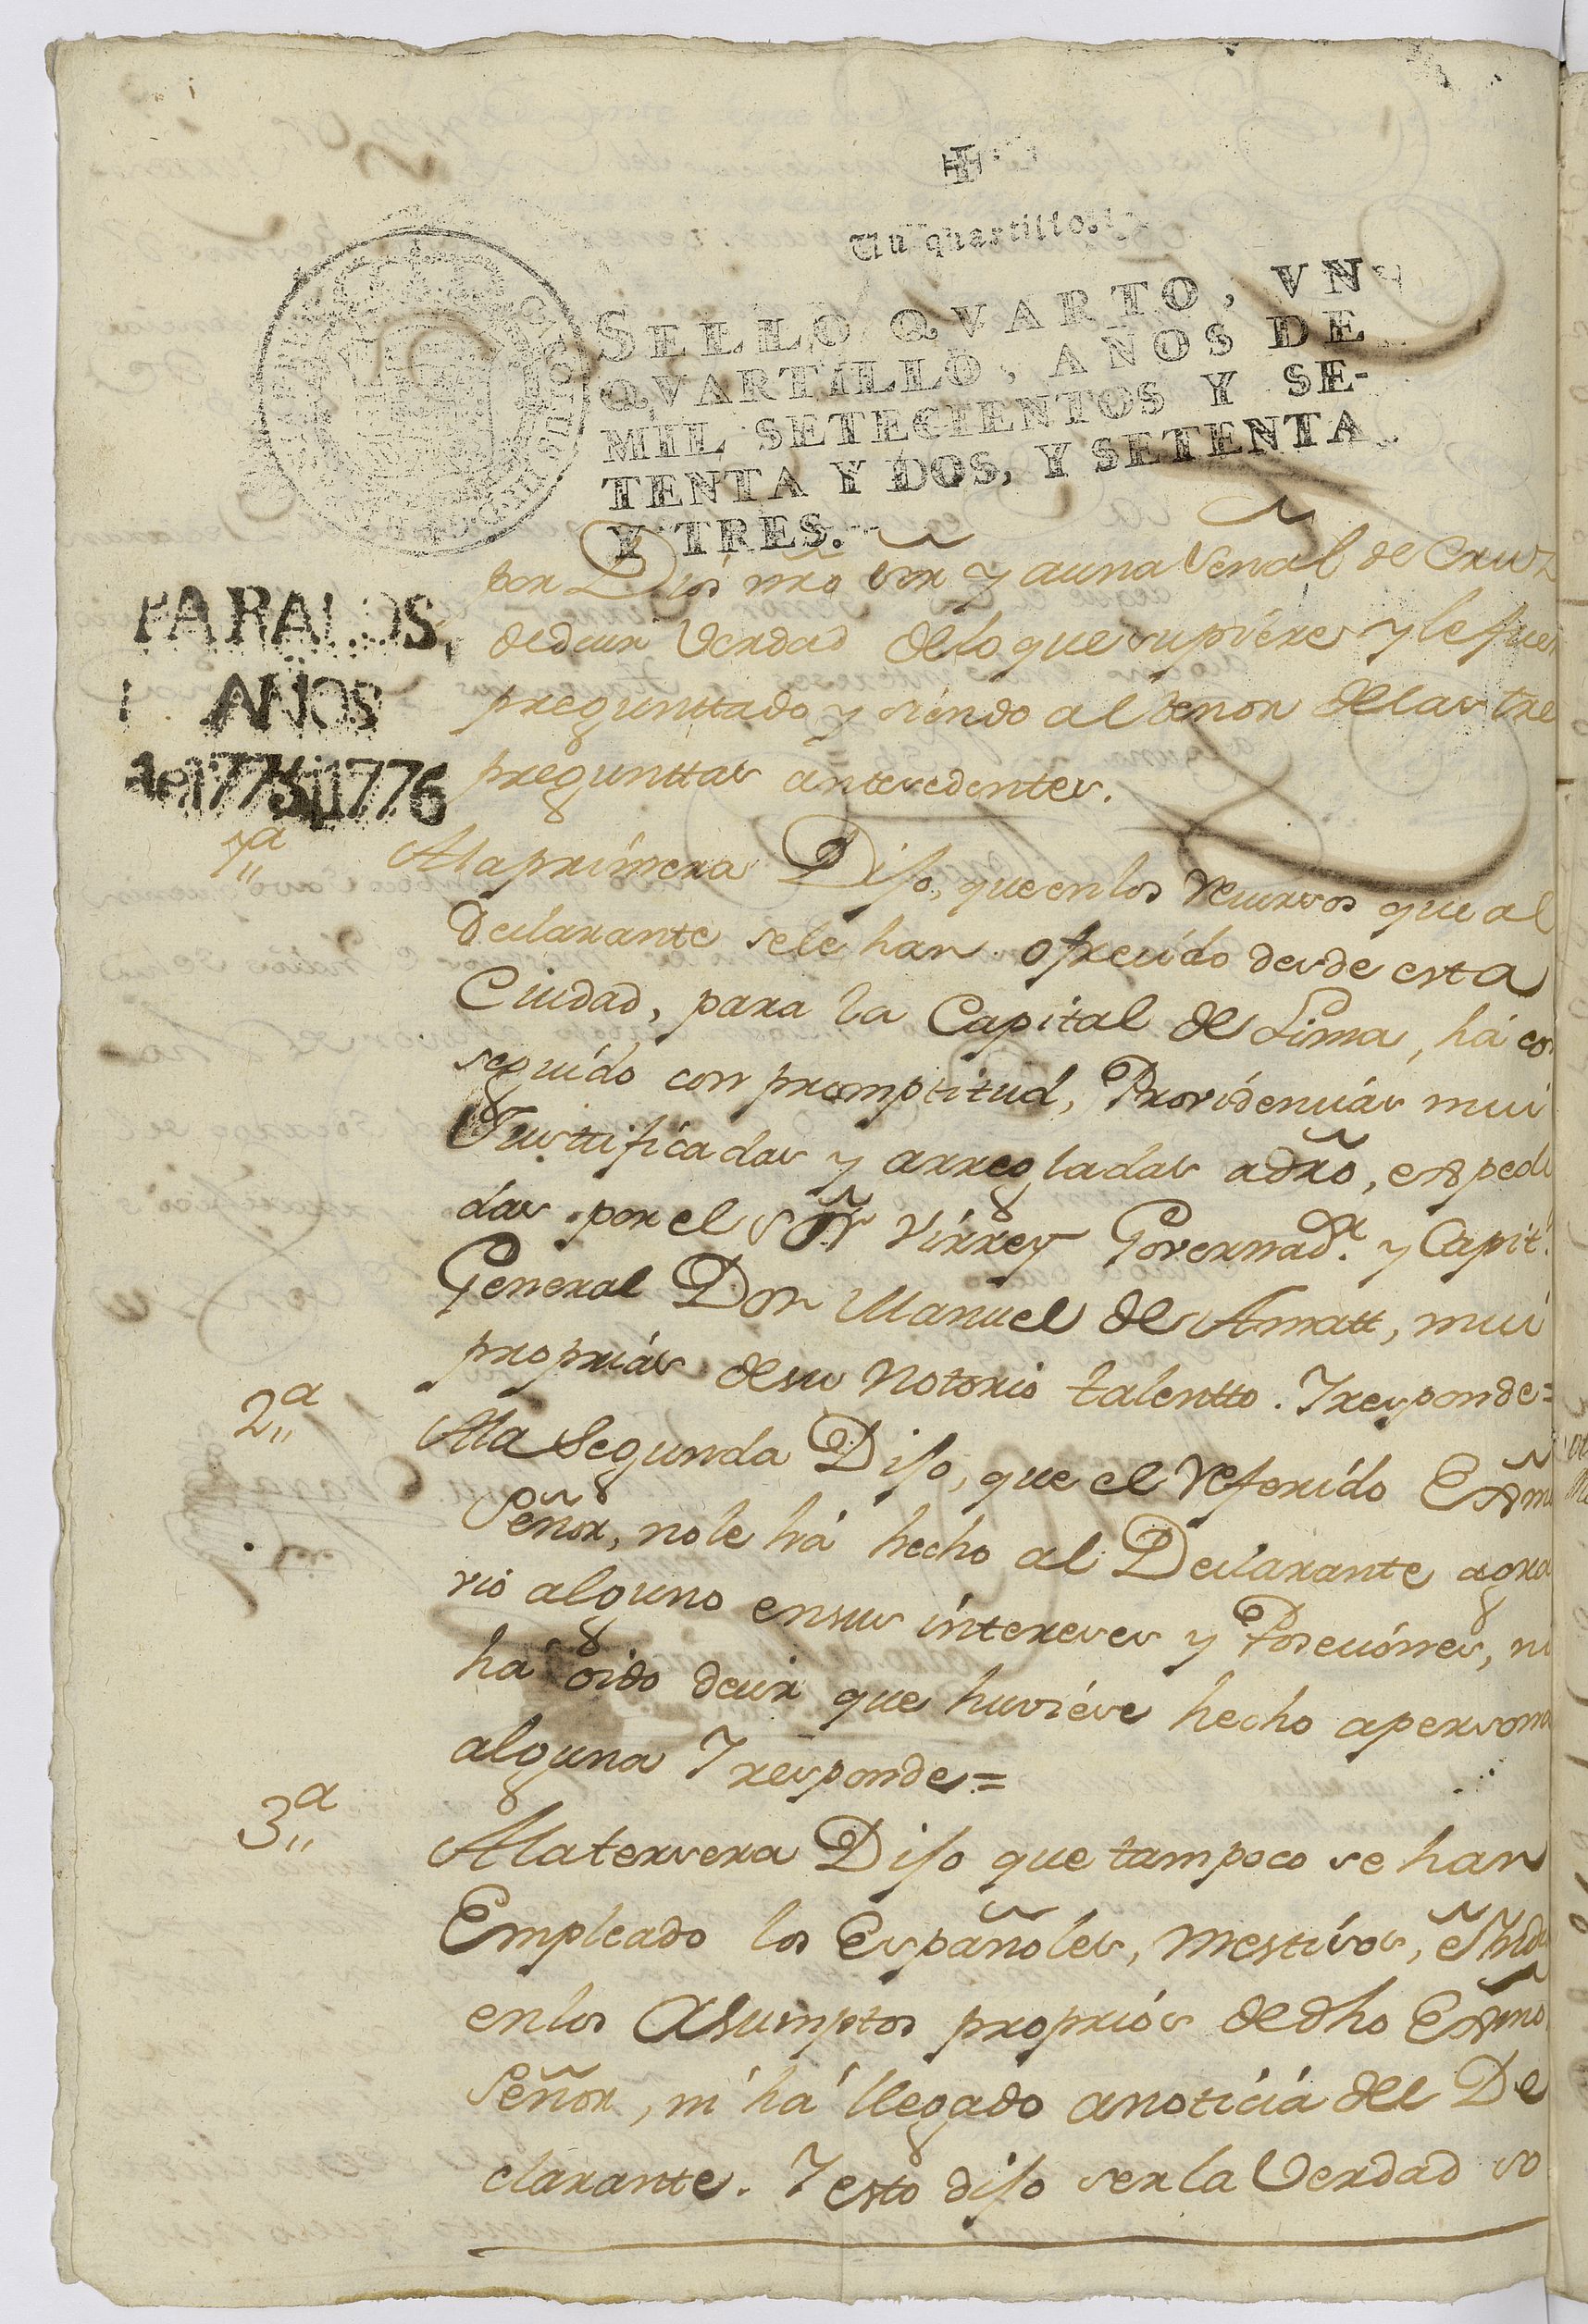 Un quartillo.
SELLO QVARTO, VN
QVARTILLO, AÑOS DE
MIL SETECIENTOS Y SE-
TENTA Y DOS, Y SETENTA
Y TRES.
PARA LOS
AÑOS
de 1775 1776
por Dios nrõ sor y auna Señal de Cruz
dedecir Verdad delo que supiére y le fue
preguntado y siéndo al tenor delas tre
preguntas antesedentes.
1ª
Ala primera Dijo, que en los recursos que al
Declarante sele han ofrecido desde esta
Ciudad, para la Capital de Lima, há con
seguído con promptitud, Providenciás mui
Justtificadas y arregladas adrõ, expedi
das por el Sõr Virrey Governadr. y Capitn.
General Don Manuel de Amatt, mui
propriás desu Notorio talentto. Y responde=
2ª
Ala Segunda Dijo, que el referído Exm̃o
Señor, nole há hecho al Declarante agra
vio alguno ensus intereses y Poseciónes, ni
há oído decir que huviése hecho apersona
alguna Y responde=
3ª
Ala tersera Dijo que tampoco se han
Empleado los Españoles, mestisos, é Ynds
en los Asumptos propriós de dho Exm̃o
Señor, ni há llegado anoticiá del De
clarante. Y esto dijo ser la Verdad so